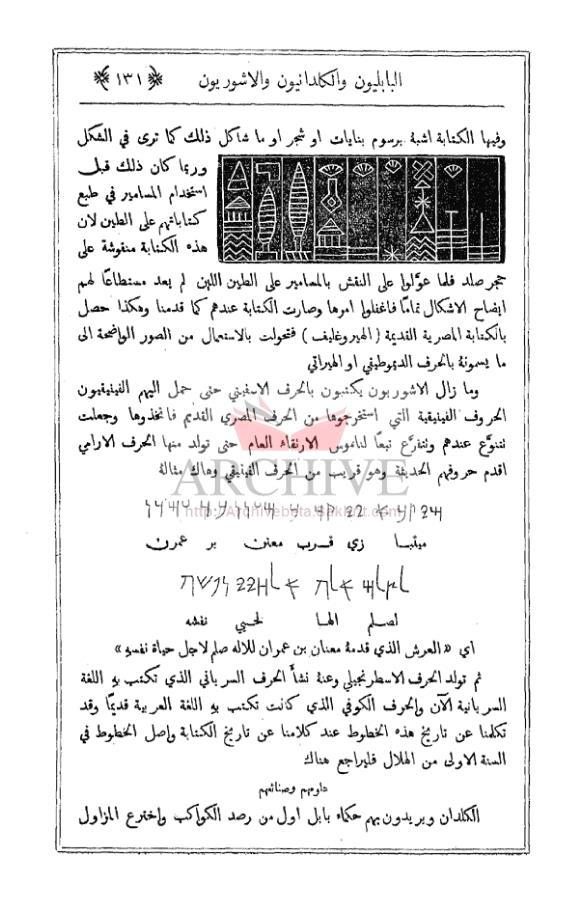 البابليون والكلدانيون والاشوريون ﴿ ١٣١ ﴾
وفيها الكتابة اشبه برسوم بنايات او شجر او ما شاكل ذلك كما ترى في الشكل
وربما كان ذلك قبل
استخدام المسامير في طبع
كتاباتهم على الطين لان
هذه الكتابة منقوشة على
حجر صلد فلما عوَّلوا على النقش بالمسامير على الطين اللين لم يعد مستطاعًا لهم
ايضاح الاشكال تمامًا فاغفلوا امرها وصارت الكتابة عندهم كما قدمنا وهكذا حصل
بالكتابة المصرية القديمة ( الهيروغليف ) فتحولت بالاستعمال من الصور الواضحة الى
ما يسمونهُ بالحرف الديموطيقي او الهيراتي
وما زال الاشوريون يكتبون بالحرف الاسفيني حتى حمل اليهم الفينيقيون
الحروف الفينيقية التي استخرجوها من الحرف المصري القديم فاتخذوها وجعلت
تتنوَّع عندهم وتتفرَّع تبعًا لناموس الارتقاء العام حتى تولد منها الحرف الارامي
اقدم حروفهم الحديثة وهو قريب من الحرف الفينيقي وهاك مثالهُ
ARCHIVE
http://Archivebeta.Sakhrit.com
ميتبا زي قرب معنن بر عمرن
لصلم الها لحيي نفشه
اي « العرش الذي قدمهُ معنان بن عمران للاله صلم لاجل حياة نفسهِ »
ثم تولد الحرف الاسطرنجيلي وعنهُ نشأ الحرف السرياني الذي تكتب بهِ اللغة
السريانية الآن والحرف الكوفي الذي كانت تكتب بهِ اللغة العربية قديمًا وقد
تكلمنا عن تاريخ هذه الخطوط عند كلامنا عن تاريخ الكتابة واصل الخطوط في
السنة الاولى من الهلال فليراجع هناك
وصنائعهم
الكلدان ويريدون بهم حكماء بابل اول من رصد الكواكب واخترع المزاول